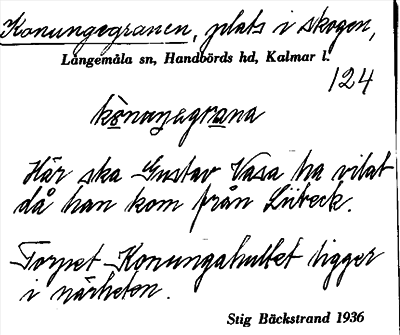 Konungegranen, plats i skogen,
Långemåla sn, Handbörds hd, Kalmar l.
124
kònoŋagrana
Här ska Gustav Vasa ha vilat
då han kom från Lübeck.
Torpet Konungahultet ligger
i närheten.
Stig Bäckstrand 1936